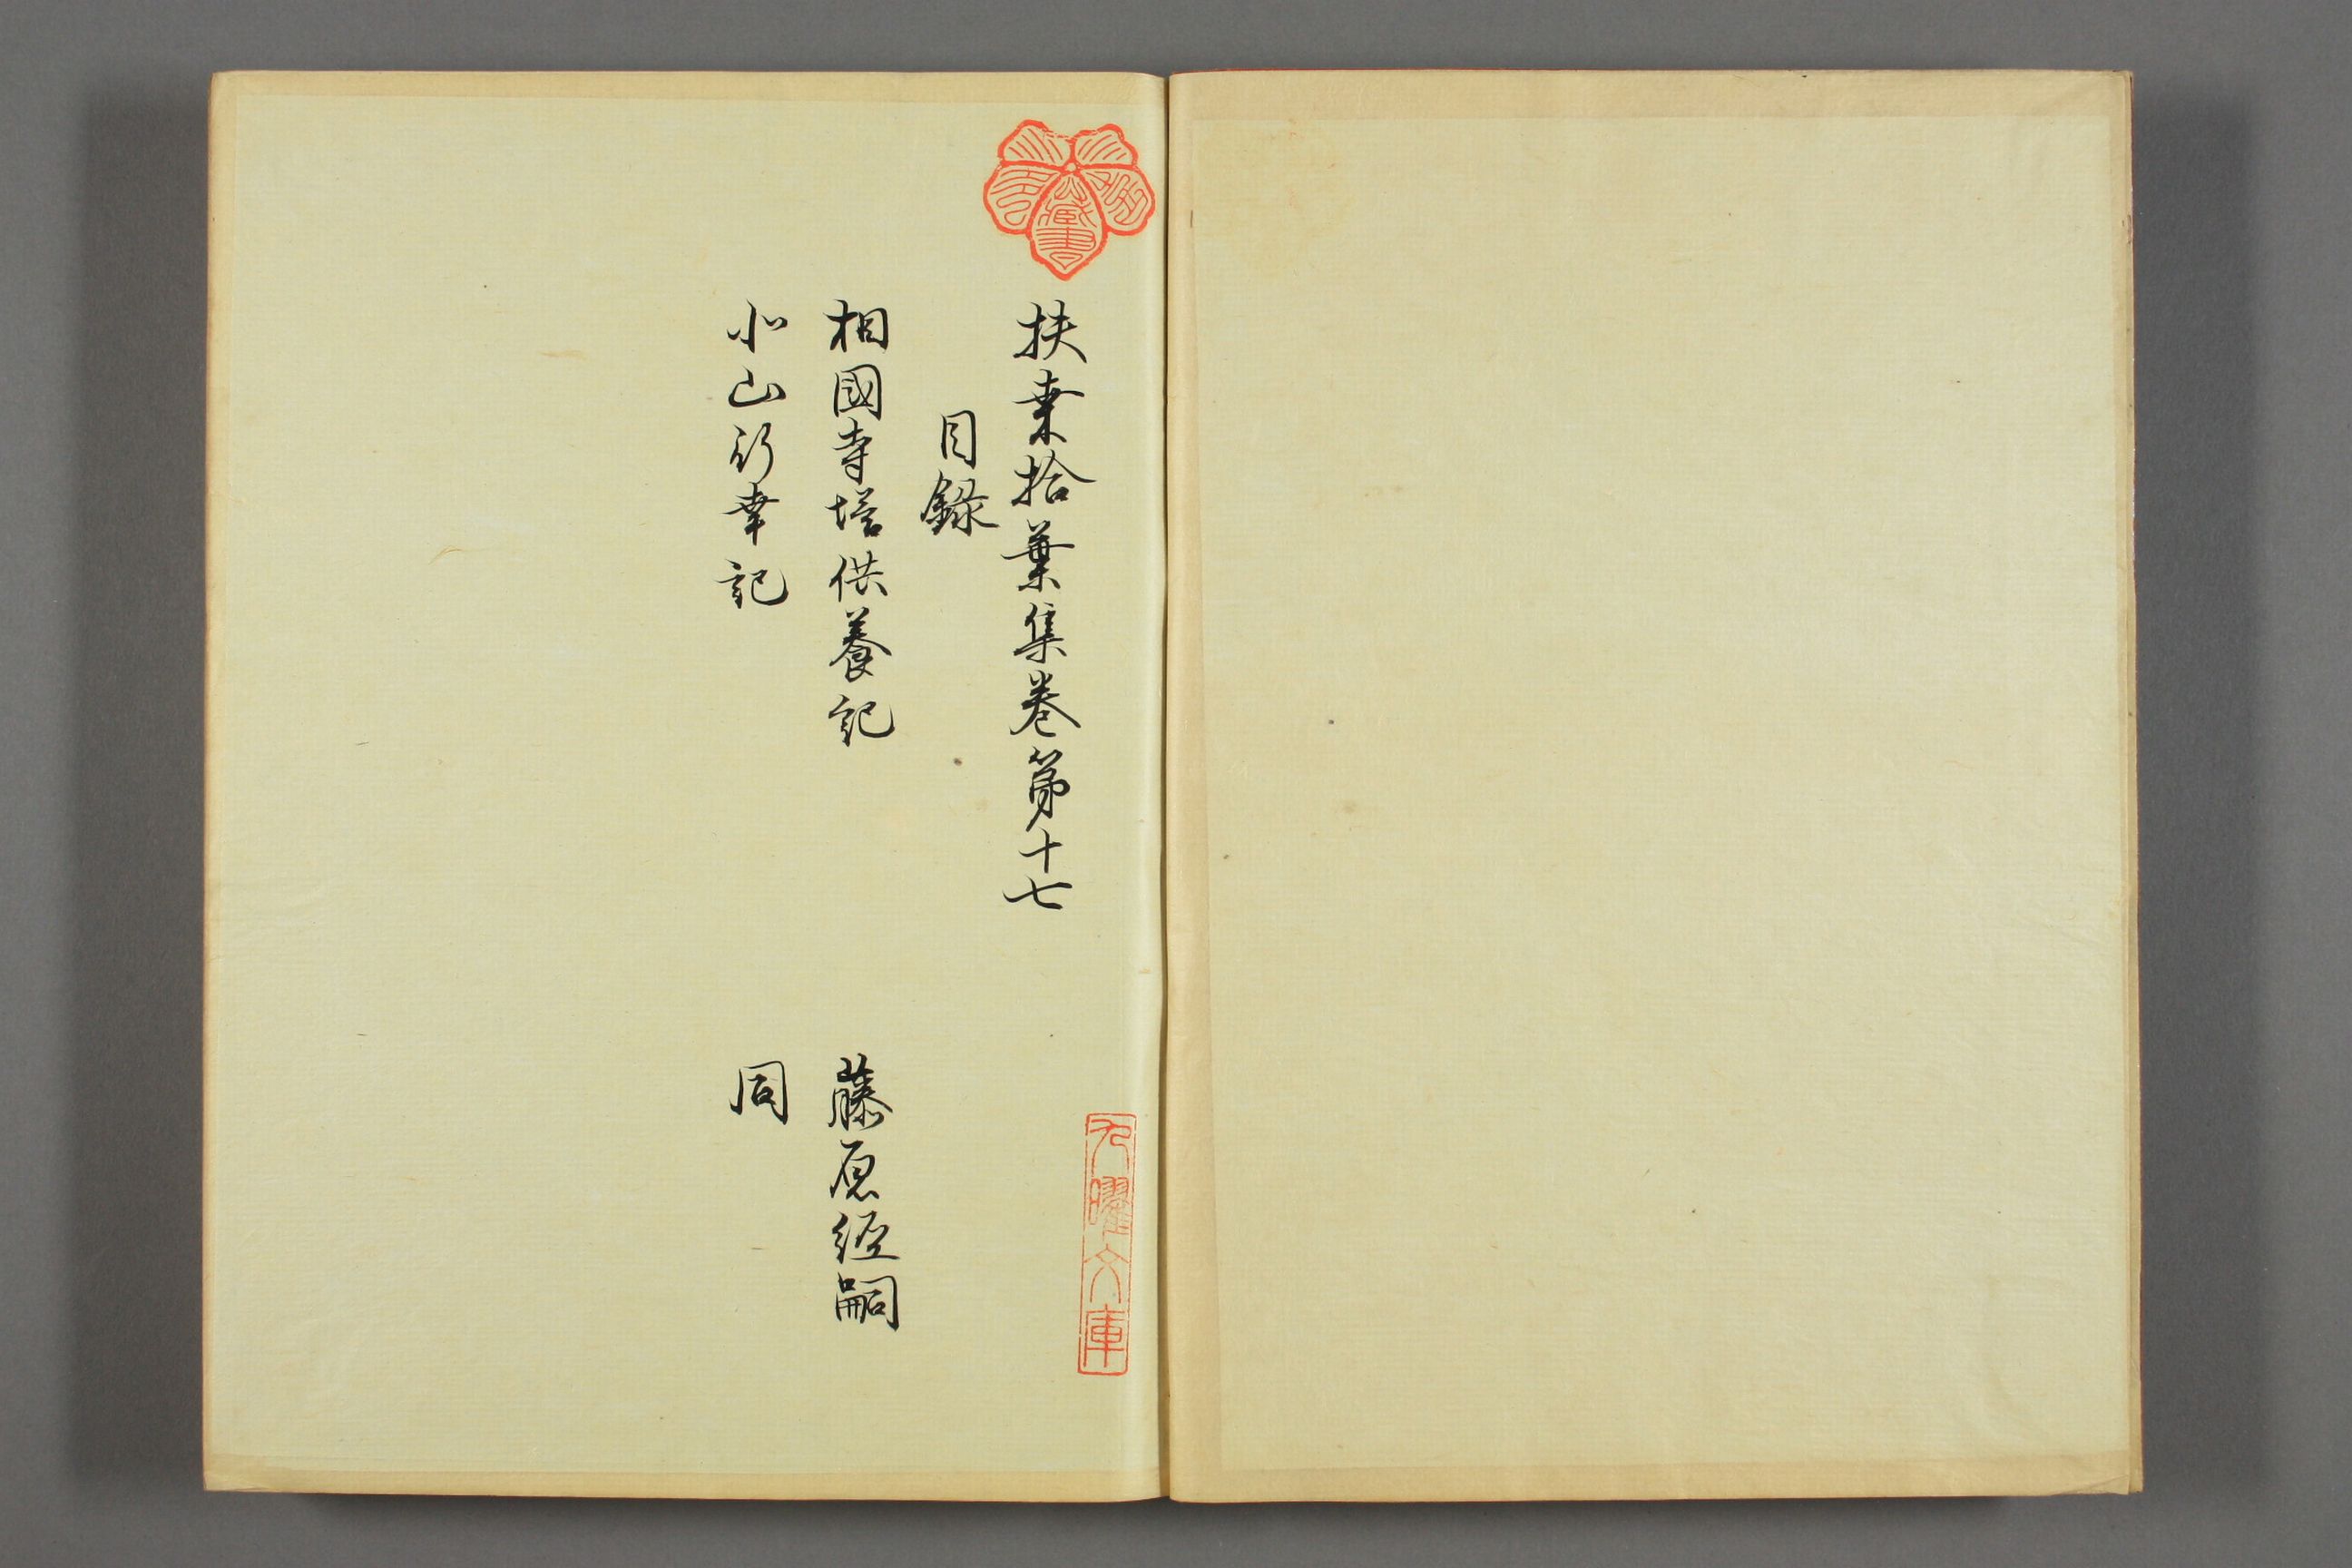 扶桒拾葉集卷第十七
目録
相國寺塔供養記 藤原經嗣
北山行幸記 同
九曜文庫